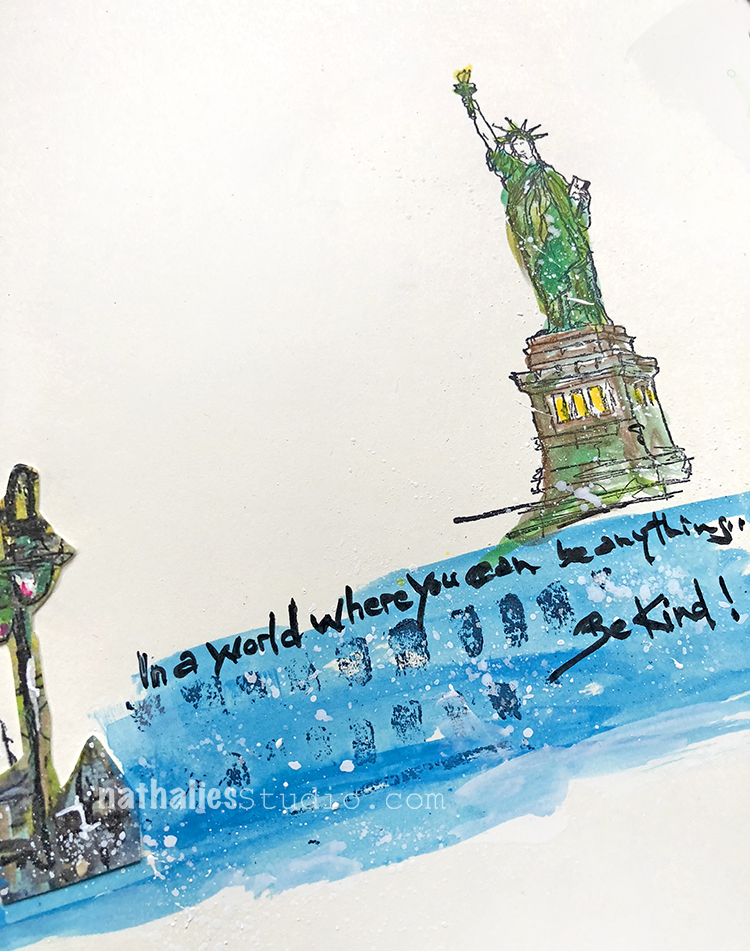 In a world where you can be anything..
Be Kind!
nathaliesStudio.com